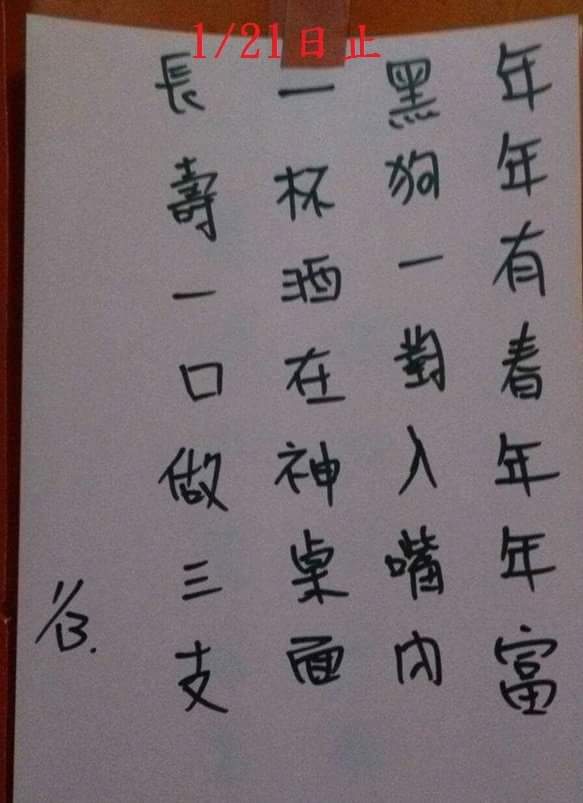 1/21日止
年年有春年年富
黑狗一對入嘴內
一杯酒在神桌面
長壽一口做三支
1/13.